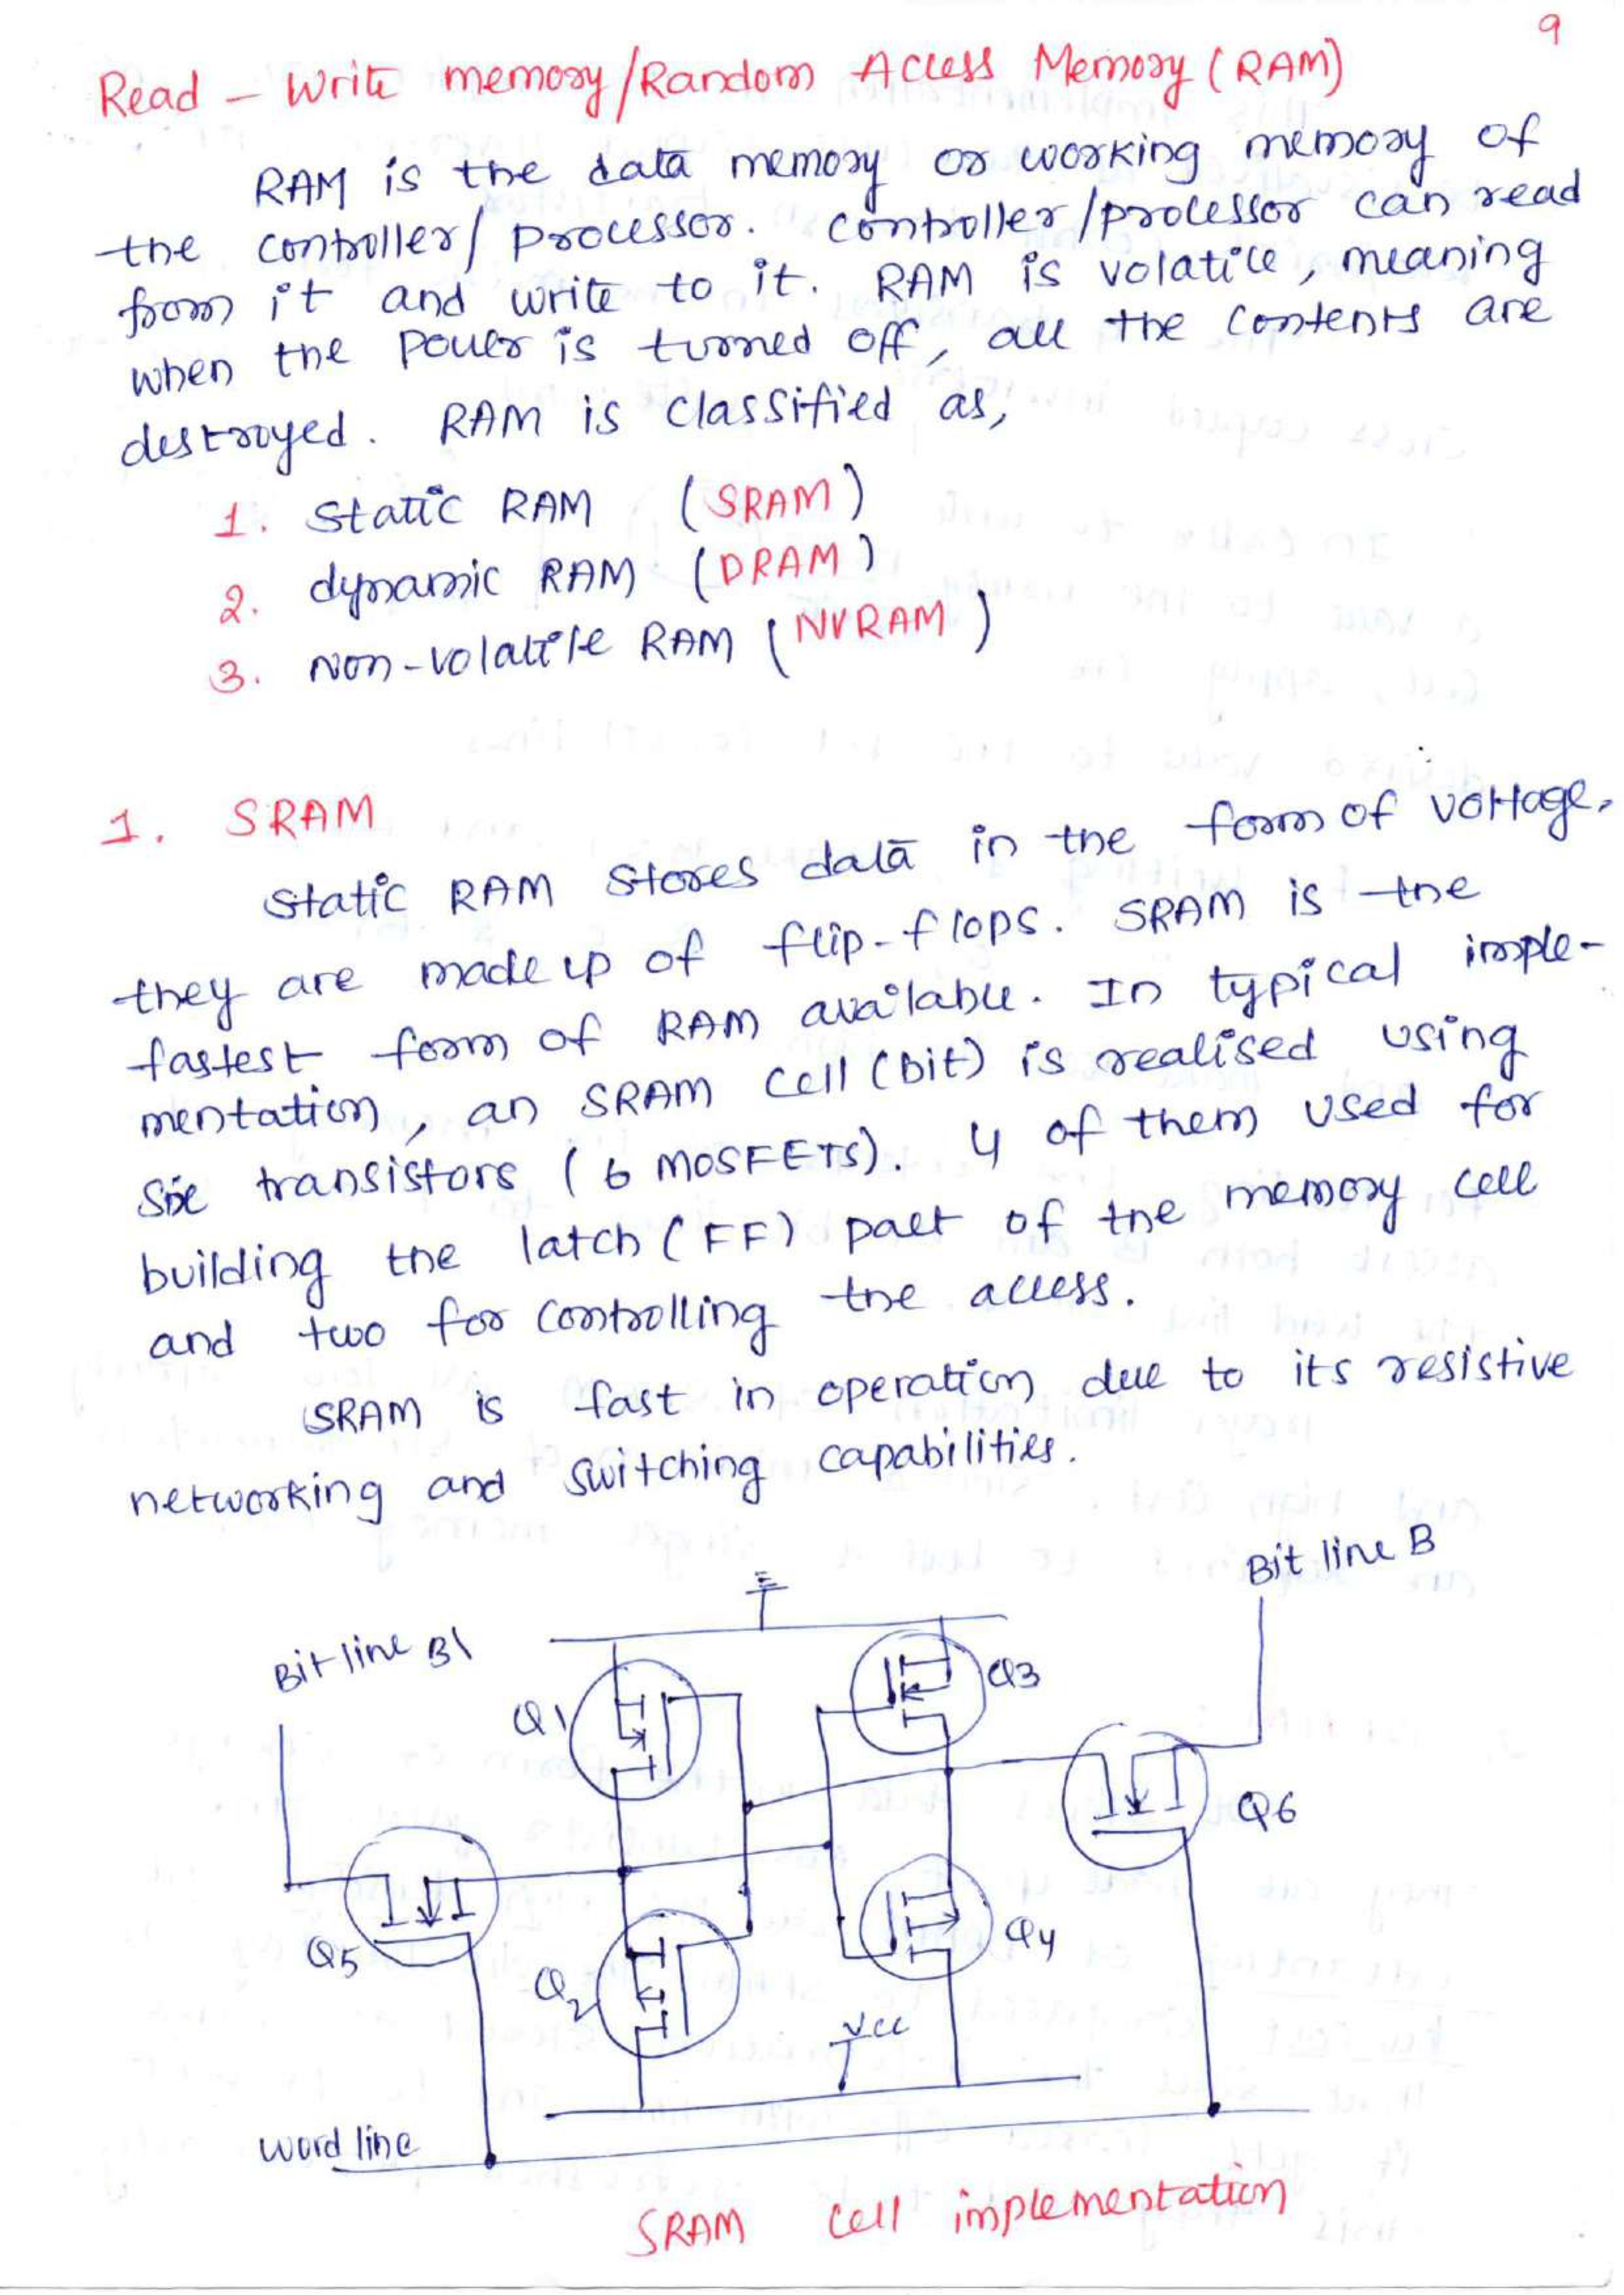 9
Read - Write memory/Random Access Memory (RAM)
RAM is the data memory or working memory of
the controller/ processor. controller/processor can read
from it and write to it. RAM is volatile, meaning
when the power is turned off, all the contents are
destroyed. RAM is classified as,
1. static RAM (SRAM)
2. dynamic RAM (DRAM)
3. Non-volatile RAM (NVRAM)
1. SRAM
static RAM stores data in the form of voltage.
they are made up of flip-flops. SRAM is the
fastest form of RAM available. In typical imple-
mentation, an SRAM cell (bit) is realised using
six transistors (6 MOSFETs). 4 of them used for
building the latch (FF) part of the memory cell
and two for controlling the access.
SRAM is fast in operation due to its resistive
networking and switching capabilities.
Bit line B\
Bit line B
Q1
Q3
Q6
Q5
Q2
Q4
Vcc
word line
SRAM cell implementation